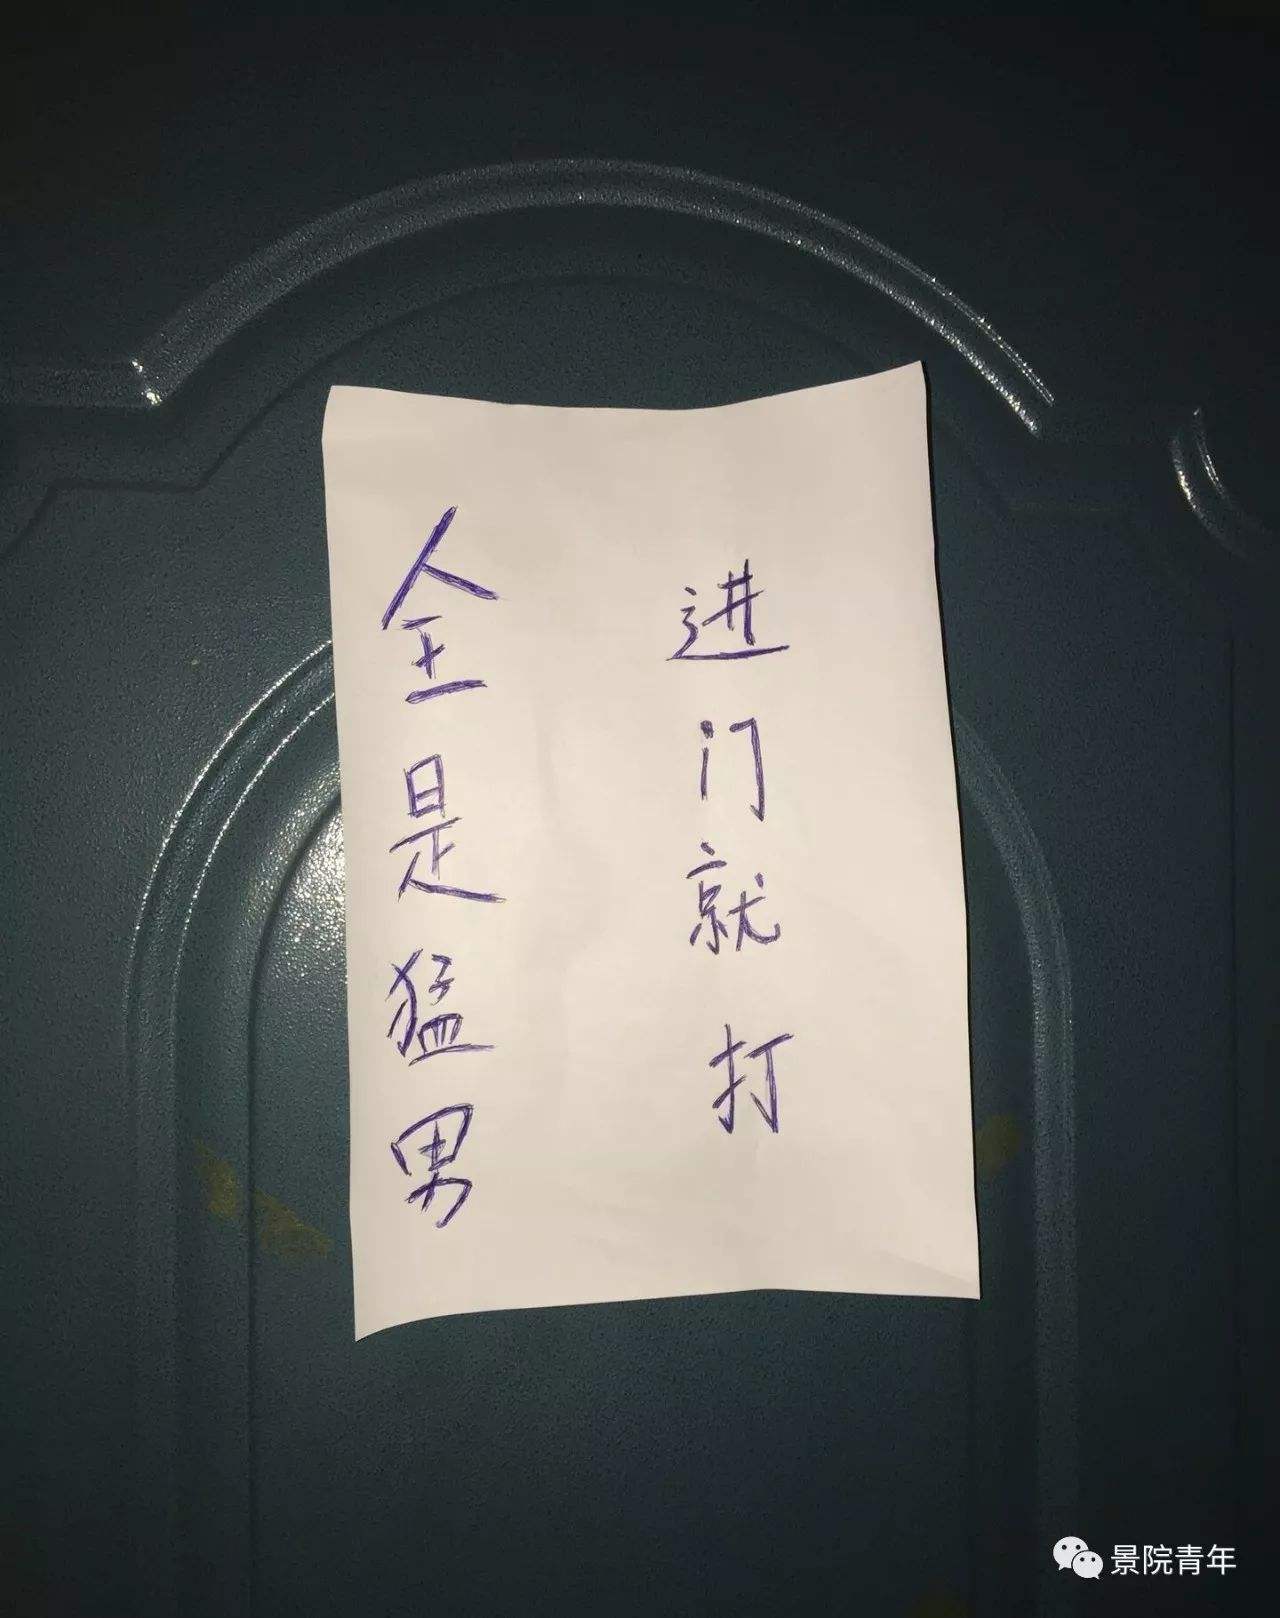 全是猛男
进门就打
景院青年